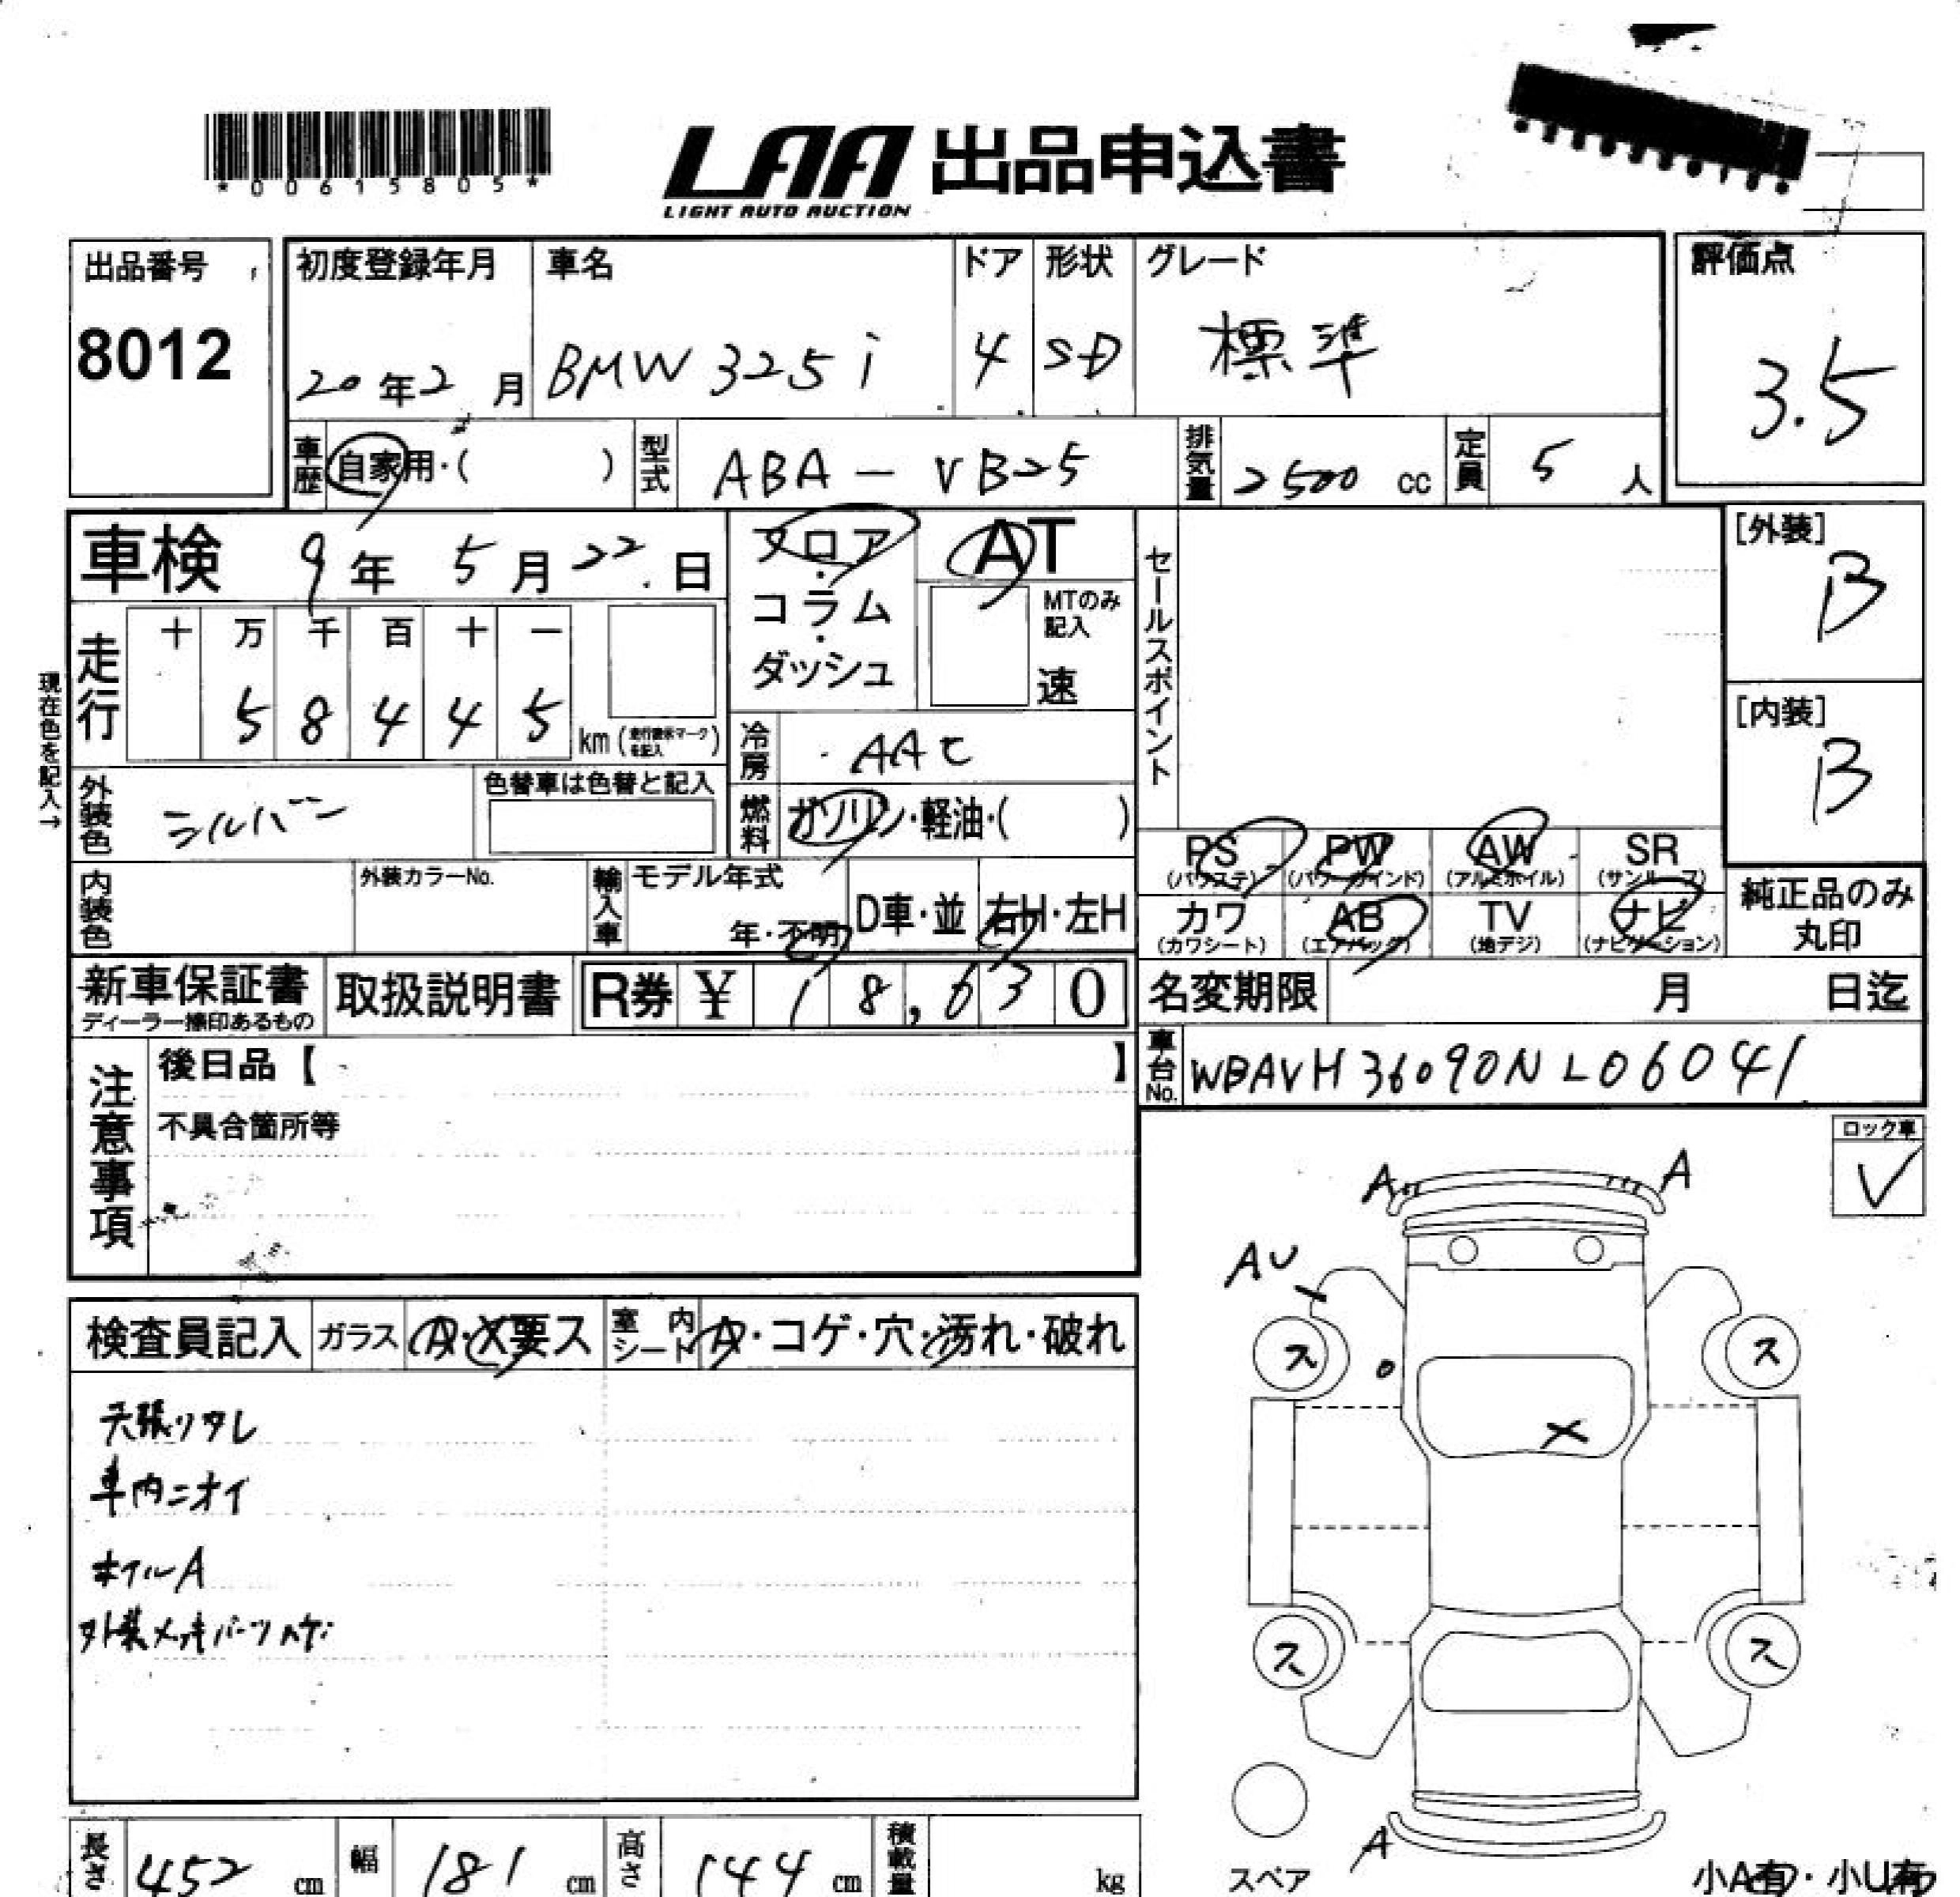 *00615805*
LAA 出品申込書
LIGHT AUTO AUCTION
出品番号
8012
初度登録年月
20年2月
車名
BMW 325i
ドア
4
形状
SD
グレード
標準
評価点
3.5
車歴
自家用・( )
型式
ABA-VB25
排気量
2500 cc
定員
5 人
車検 9年 5月 22日
フロア・コラム・ダッシュ
AT
MTのみ記入
速
セールスポイント
[外装]
B
[内装]
B
現在色を記入→
走行
十 万 千 百 十 一
5 8 4 4 5
km
冷房
AAC
外装色
シルバー
色替車は色替と記入
燃料
ガソリン・軽油・( )
PS (パワステ)
PW (パワーウインド)
AW (アルミホイル)
SR (サンルーフ)
内装色
外装カラーNo.
輸入車
モデル年式
年・不明
D車・並
右H・左H
カワ (カワシート)
AB (エアバッグ)
TV (地デジ)
ナビ (ナビゲーション)
純正品のみ丸印
新車保証書
ディーラー捺印あるもの
取扱説明書
R券 ¥ 18,630
名変期限 月 日迄
車台No.
WBAVH36090NL06041
注意事項
後日品【 】
不具合箇所等
ロック車
✓
A A
AU
ス ス
X
ス ス
A
スペア
小A有・小U有
検査員記入
ガラス
A・X要ス
室内シート
A・コゲ・穴・汚れ・破れ
天張リタレ
車内ニオイ
ホイルA
外装メッキパーツハゲ
長さ
452 cm
幅
181 cm
高さ
144 cm
積載量
kg